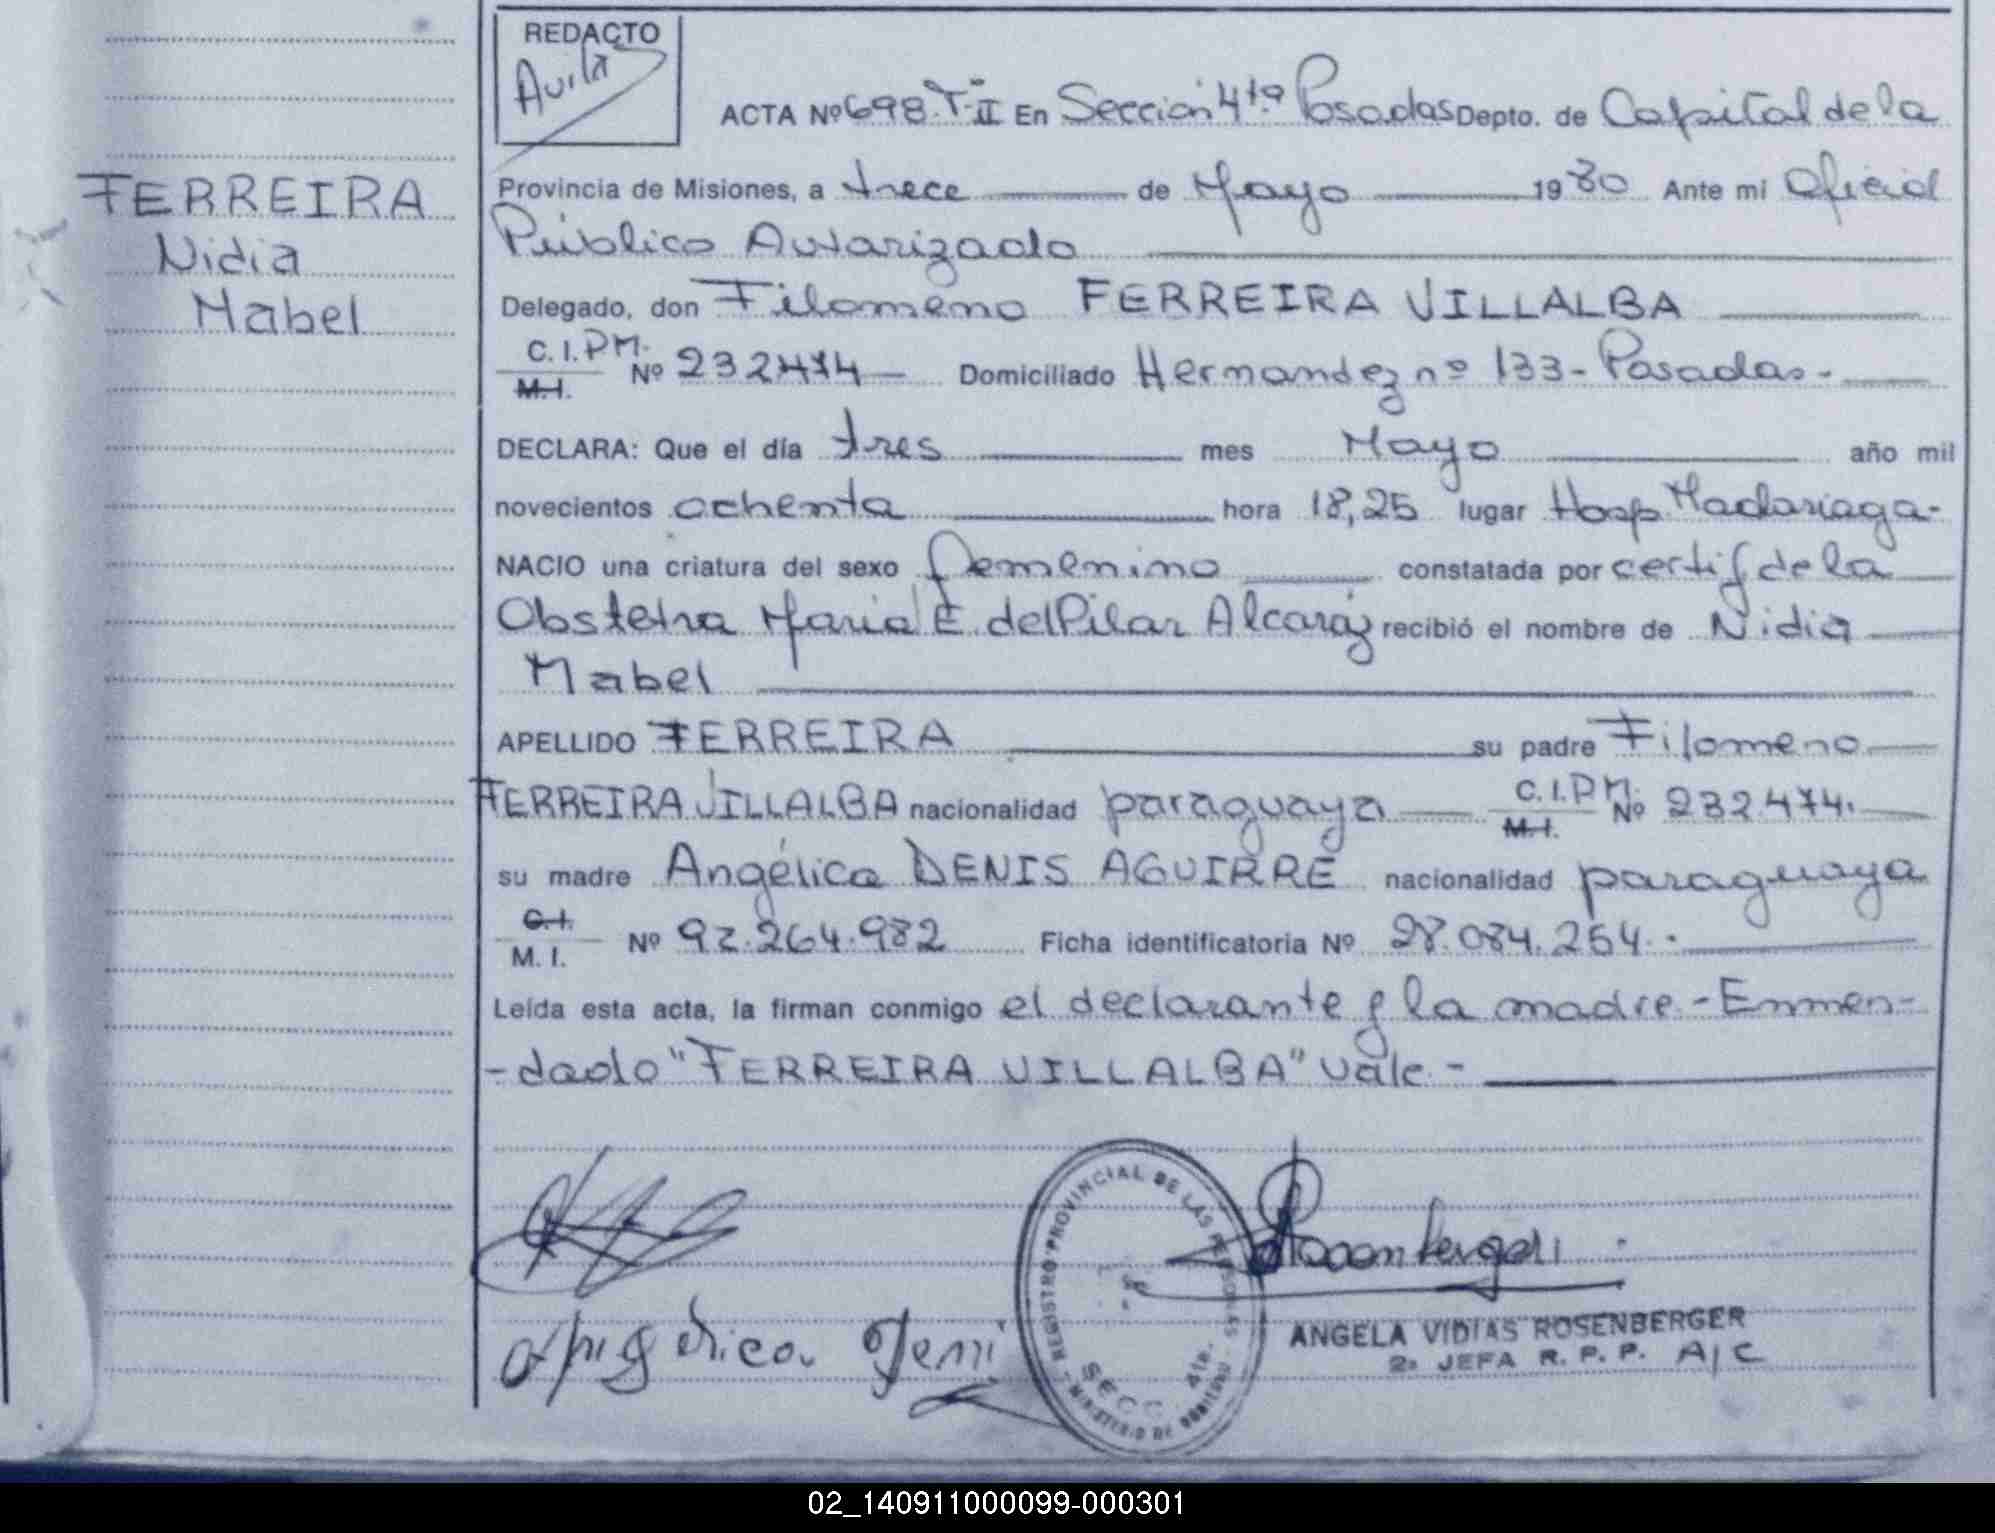 REDACTO
Avila
ACTA Nº 698. T-II En Sección 4ta Posadas Depto. de Capital de la
Provincia de Misiones, a trece de Mayo 1980 Ante mi Oficial
FERREIRA
Público Autorizado
Nidia
Delegado, don Filomeno FERREIRA VILLALBA
Mabel
C.I.P.M.
M.I. Nº 232474 Domiciliado Hernandez nº 133 - Posadas -
DECLARA: Que el día tres mes Mayo año mil
novecientos ochenta hora 18,25 lugar Hosp Madariaga -
NACIO una criatura del sexo femenino constatada por certif de la
Obstetra Maria E. del Pilar Alcaráz recibió el nombre de Nidia
Mabel
APELLIDO FERREIRA su padre Filomeno
FERREIRA VILLALBA nacionalidad paraguaya C.I.P.M. M.I. Nº 232.474.
su madre Angélica DENIS AGUIRRE nacionalidad paraguaya
C.I.
M. I. Nº 92.264.982 Ficha identificatoria Nº 28.084.254.-
Leída esta acta, la firman conmigo el declarante y la madre.- Enmen-
-dado "FERREIRA VILLALBA" vale -
REGISTRO PROVINCIAL DE LAS PERSONAS - MINISTERIO DE GOBIERNO -
SECC 4ta.
Angelica Deni
ANGELA VIDIAS ROSENBERGER
2a JEFA R. P. P. A/C
02_140911000099-000301